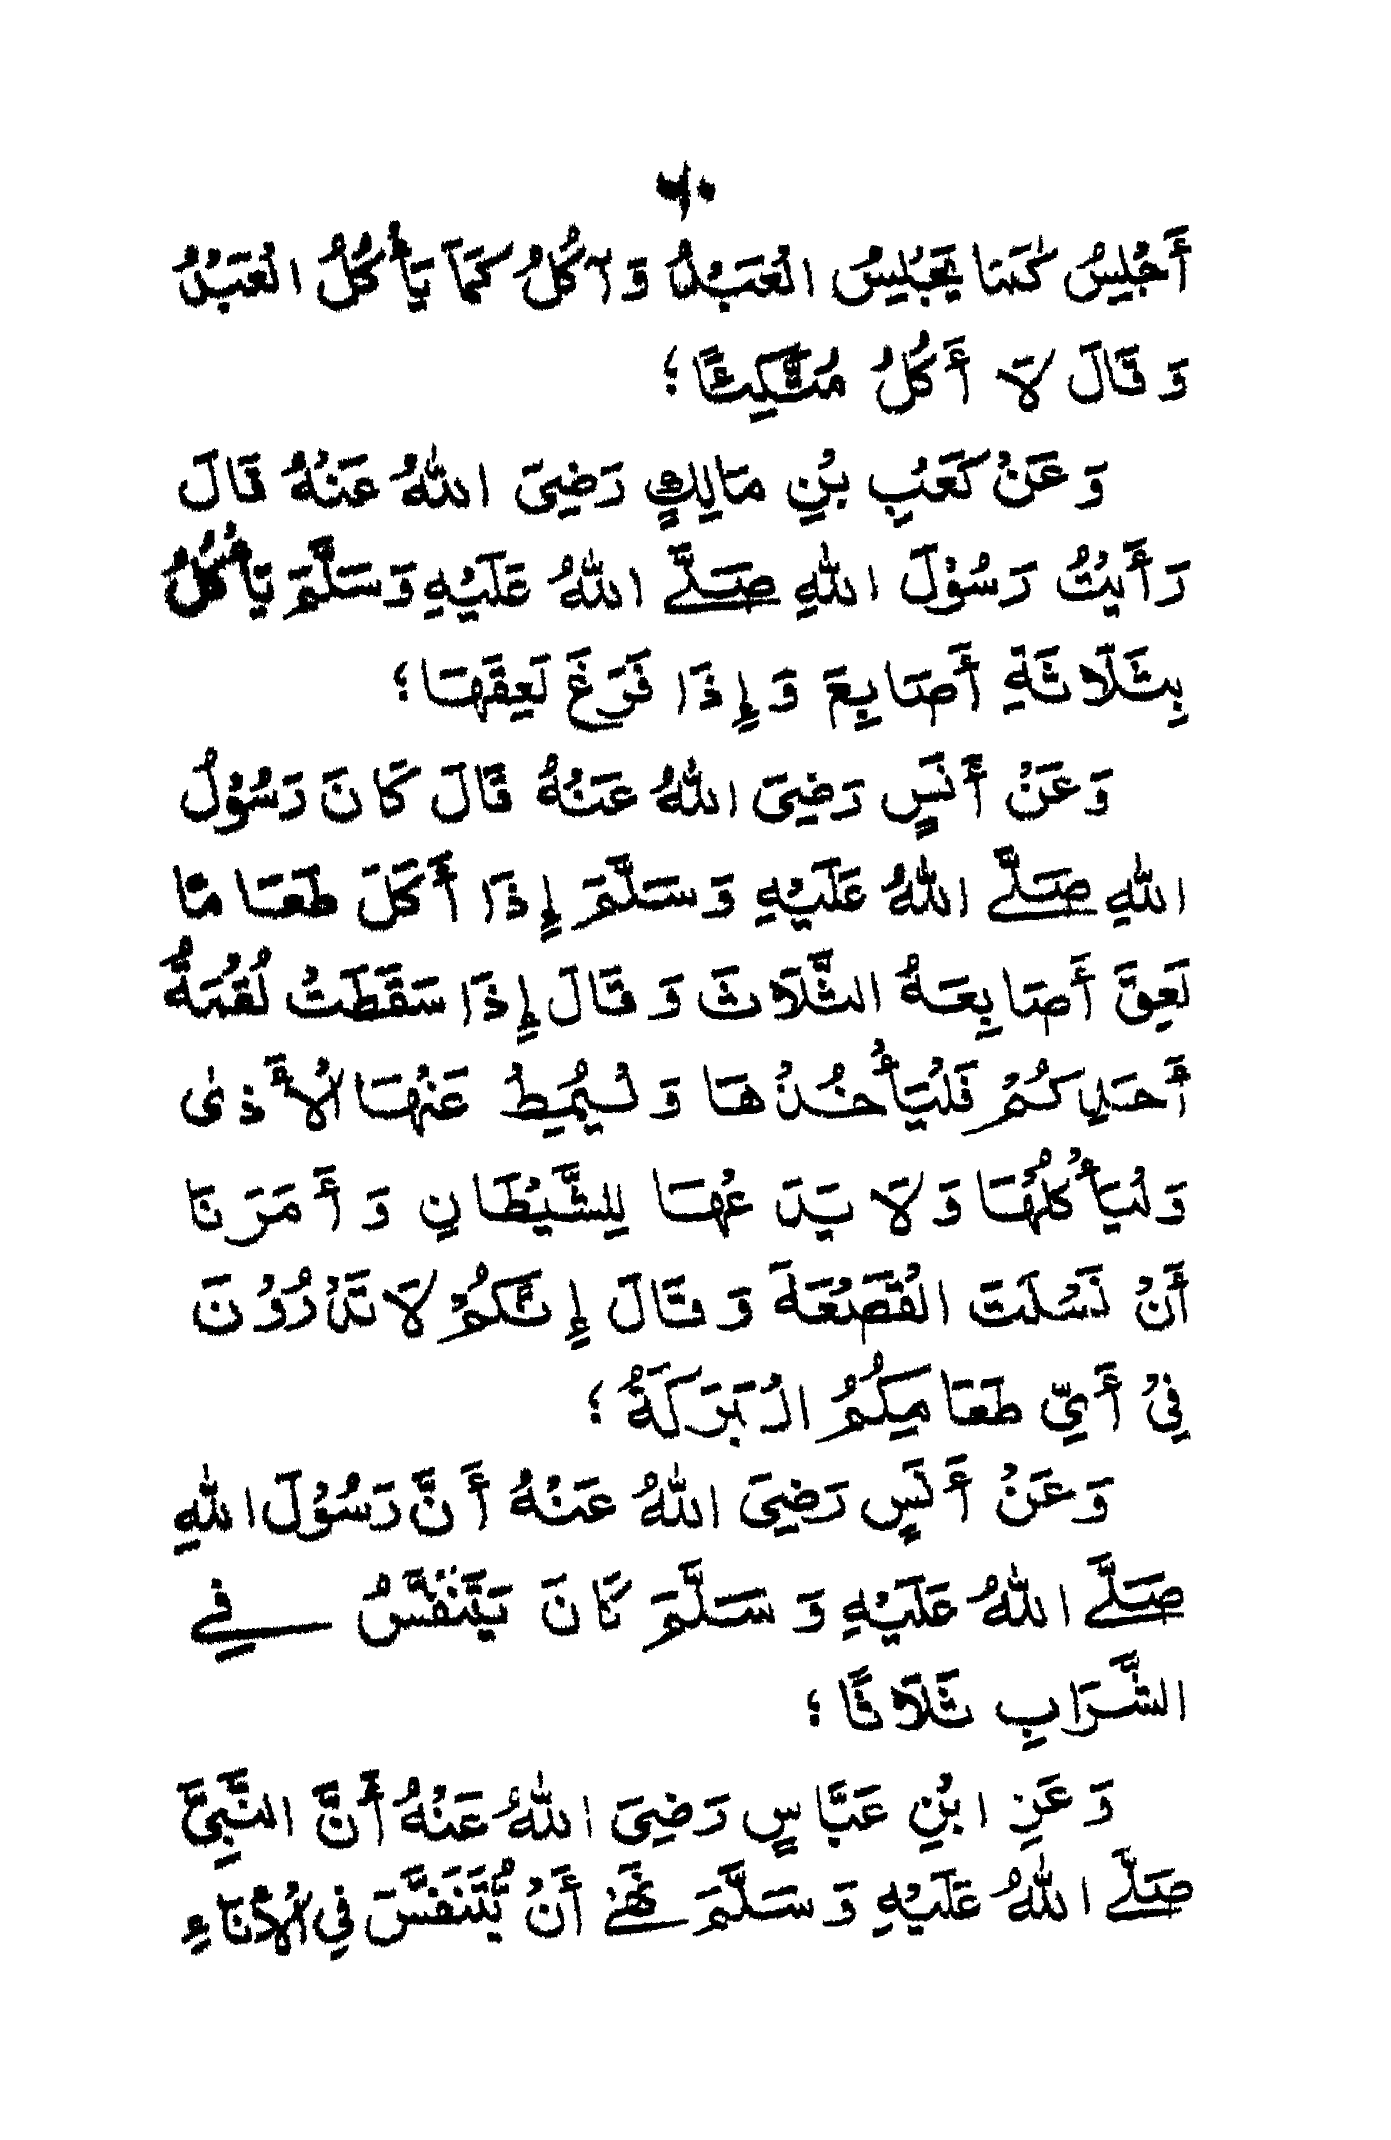 ٦٠
أَجْلِسُ كَمَا يَجْلِسُ الْعَبْدُ وَآكُلُ كَمَا يَأْكُلُ الْعَبْدُ
وَقَالَ لَا أٰكُلُ مُتَّكِئًا ؛
وَعَنْ كَعْبِ بْنِ مَالِكٍ رَضِىَ اللّٰهُ عَنْهُ قَالَ
رَأَيْتُ رَسُوْلَ اللّٰهِ صَلَّے اللّٰهُ عَلَيْهِ وَسَلَّمَ يَأْكُلُ
بِثَلَاثَةِ أَصَابِعَ وَإِذَا فَرَغَ لَعِقَهَا ؛
وَعَنْ أَنَسٍ رَضِىَ اللّٰهُ عَنْهُ قَالَ كَانَ رَسُوْلُ
اللّٰهِ صَلَّے اللّٰهُ عَلَيْهِ وَسَلَّمَ إِذَا أَكَلَ طَعَامًا
لَعِقَ أَصَابِعَهُ الثَّلَاثَ وَقَالَ إِذَا سَقَطَتْ لُقْمَةُ
أَحَدِكُمْ فَلْيَأْخُذْهَا وَلْيُمِطْ عَنْهَا الْأَذٰى
وَلْيَأْكُلْهَا وَلَا يَدَعْهَا لِلشَّيْطَانِ وَأَمَرَنَا
أَنْ نَسْلَتَ الْقَصْعَةَ وَقَالَ إِنَّكُمْ لَا تَدْرُوْنَ
فِيْ أَيِّ طَعَامِكُمُ الْبَرَكَةُ ؛
وَعَنْ أَنَسٍ رَضِىَ اللّٰهُ عَنْهُ أَنَّ رَسُوْلَ اللّٰهِ
صَلَّے اللّٰهُ عَلَيْهِ وَسَلَّمَ كَانَ يَتَنَفَّسُ فِے
الشَّرَابِ ثَلَاثًا ؛
وَعَنِ ابْنِ عَبَّاسٍ رَضِىَ اللّٰهُ عَنْهُ أَنَّ النَّبِىَّ
صَلَّے اللّٰهُ عَلَيْهِ وَسَلَّمَ نَهٰے أَنْ يُّتَنَفَّسَ فِي الْإِنَاءِ